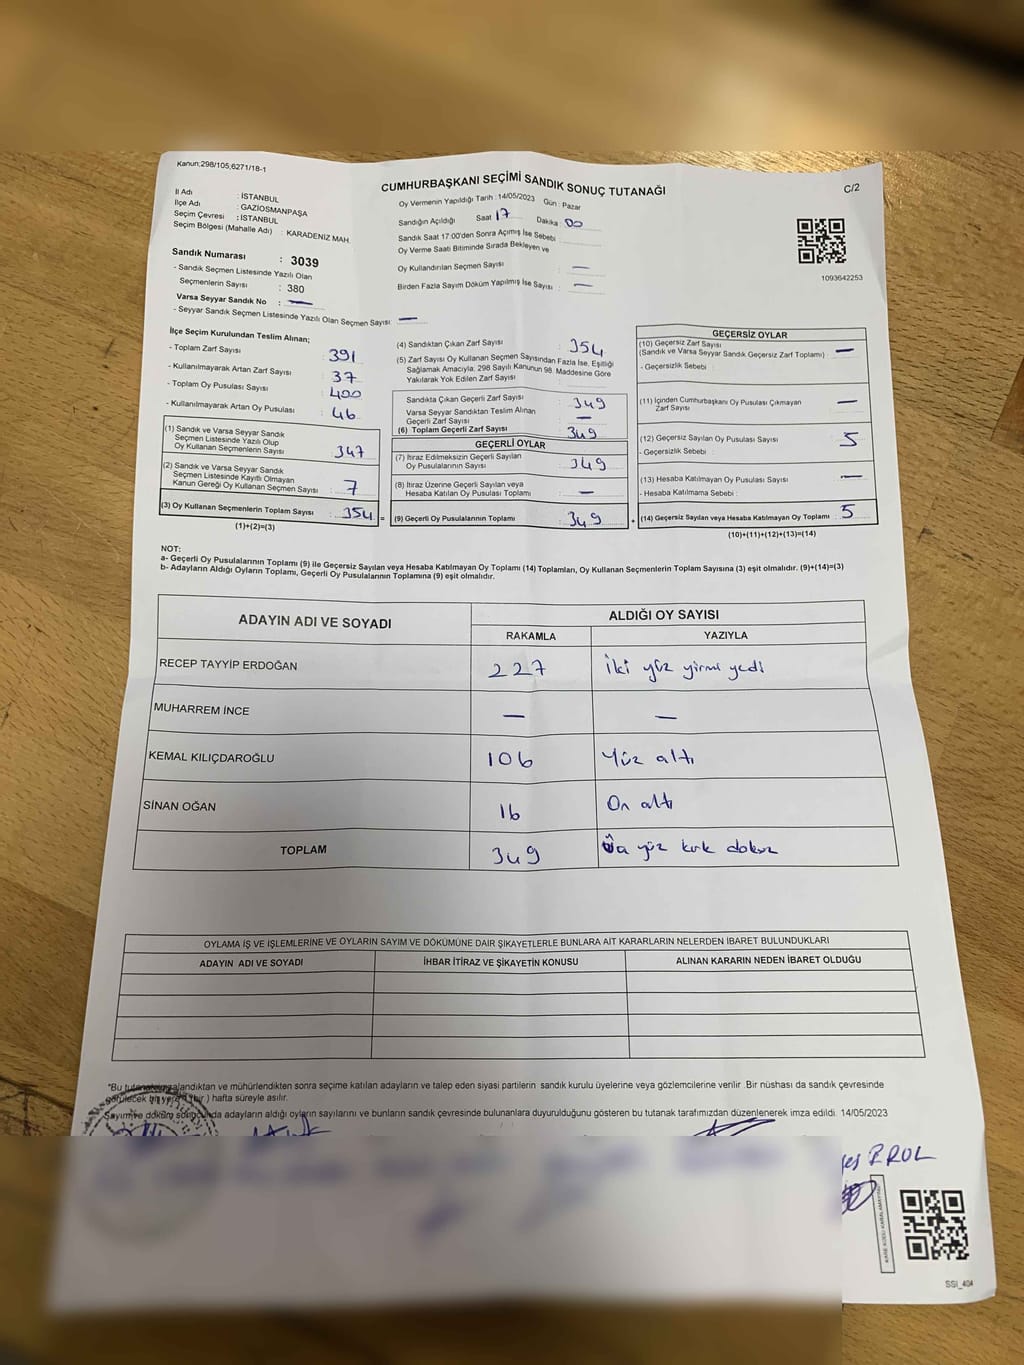 Kanun;298/105;6271/18-1
CUMHURBAŞKANI SEÇİMİ SANDIK SONUÇ TUTANAĞI
C/2
İl Adı : İSTANBUL
İlçe Adı : GAZİOSMANPAŞA
Seçim Çevresi : İSTANBUL
Seçim Bölgesi (Mahalle Adı) : KARADENİZ MAH.
Oy Vermenin Yapıldığı Tarih : 14/05/2023 Gün : Pazar
Sandığın Açıldığı Saat 17 Dakika : 00
Sandık Saat 17:00'den Sonra Açımış İse Sebebi :
Oy Verme Saati Bitiminde Sırada Bekleyen ve
Oy Kullandırılan Seçmen Sayısı : —
Birden Fazla Sayım Döküm Yapılmış İse Sayısı : —
1093642253
Sandık Numarası : 3039
- Sandık Seçmen Listesinde Yazılı Olan
Seçmenlerin Sayısı : 380
Varsa Seyyar Sandık No : —
- Seyyar Sandık Seçmen Listesinde Yazılı Olan Seçmen Sayısı : —
İlçe Seçim Kurulundan Teslim Alınan;
- Toplam Zarf Sayısı : 391
- Kullanılmayarak Artan Zarf Sayısı : 37
- Toplam Oy Pusulası Sayısı : 400
- Kullanılmayarak Artan Oy Pusulası : 46
(1) Sandık ve Varsa Seyyar Sandık
Seçmen Listesinde Yazılı Olup
Oy Kullanan Seçmenlerin Sayısı : 347
(2) Sandık ve Varsa Seyyar Sandık
Seçmen Listesinde Kayıtlı Olmayan
Kanun Gereği Oy Kullanan Seçmen Sayısı : 7
(3) Oy Kullanan Seçmenlerin Toplam Sayısı : 354 =
(1)+(2)=(3)
(4) Sandıktan Çıkan Zarf Sayısı : 354
(5) Zarf Sayısı Oy Kullanan Seçmen Sayısından Fazla İse, Eşitliği
Sağlamak Amacıyla; 298 Sayılı Kanunun 98. Maddesine Göre
Yakılarak Yok Edilen Zarf Sayısı :
Sandıkta Çıkan Geçerli Zarf Sayısı : 349
Varsa Seyyar Sandıktan Teslim Alınan
Geçerli Zarf Sayısı : —
(6) Toplam Geçerli Zarf Sayısı : 349
GEÇERLİ OYLAR
(7) İtiraz Edilmeksizin Geçerli Sayılan
Oy Pusulalarının Sayısı : 349
(8) İtiraz Üzerine Geçerli Sayılan veya
Hesaba Katılan Oy Pusulası Toplamı : —
(9) Geçerli Oy Pusulalarının Toplamı : 349 +
GEÇERSİZ OYLAR
(10) Geçersiz Zarf Sayısı
(Sandık ve Varsa Seyyar Sandık Geçersiz Zarf Toplamı) : —
- Geçersizlik Sebebi :
(11) İçinden Cumhurbaşkanı Oy Pusulası Çıkmayan
Zarf Sayısı : —
(12) Geçersiz Sayılan Oy Pusulası Sayısı : 5
- Geçersizlik Sebebi :
(13) Hesaba Katılmayan Oy Pusulası Sayısı : —
- Hesaba Katılmama Sebebi :
(14) Geçersiz Sayılan veya Hesaba Katılmayan Oy Toplamı : 5
(10)+(11)+(12)+(13)=(14)
NOT:
a- Geçerli Oy Pusulalarının Toplamı (9) ile Geçersiz Sayılan veya Hesaba Katılmayan Oy Toplamı (14) Toplamları, Oy Kullanan Seçmenlerin Toplam Sayısına (3) eşit olmalıdır. (9)+(14)=(3)
b- Adayların Aldığı Oyların Toplamı, Geçerli Oy Pusulalarının Toplamına (9) eşit olmalıdır.
ADAYIN ADI VE SOYADI
ALDIĞI OY SAYISI
RAKAMLA YAZIYLA
RECEP TAYYİP ERDOĞAN 227 İki yüz yirmi yedi
MUHARREM İNCE — —
KEMAL KILIÇDAROĞLU 106 Yüz altı
SİNAN OĞAN 16 On altı
TOPLAM 349 Üç yüz kırk dokuz
OYLAMA İŞ VE İŞLEMLERİNE VE OYLARIN SAYIM VE DÖKÜMÜNE DAİR ŞİKAYETLERLE BUNLARA AİT KARARLARIN NELERDEN İBARET BULUNDUKLARI
ADAYIN ADI VE SOYADI İHBAR İTİRAZ VE ŞİKAYETİN KONUSU ALINAN KARARIN NEDEN İBARET OLDUĞU
"Bu tutanak imzalandıktan ve mühürlendikten sonra seçime katılan adayların ve talep eden siyasi partilerin sandık kurulu üyelerine veya gözlemcilerine verilir .Bir nüshası da sandık çevresinde
görülecek bir yere (bir ) hafta süreyle asılır.
Sayım ve döküm sonucunda adayların aldığı oyların sayılarını ve bunların sandık çevresinde bulunanlara duyurulduğunu gösteren bu tutanak tarafımızdan düzenlenerek imza edildi. 14/05/2023
EROL
SSI_404